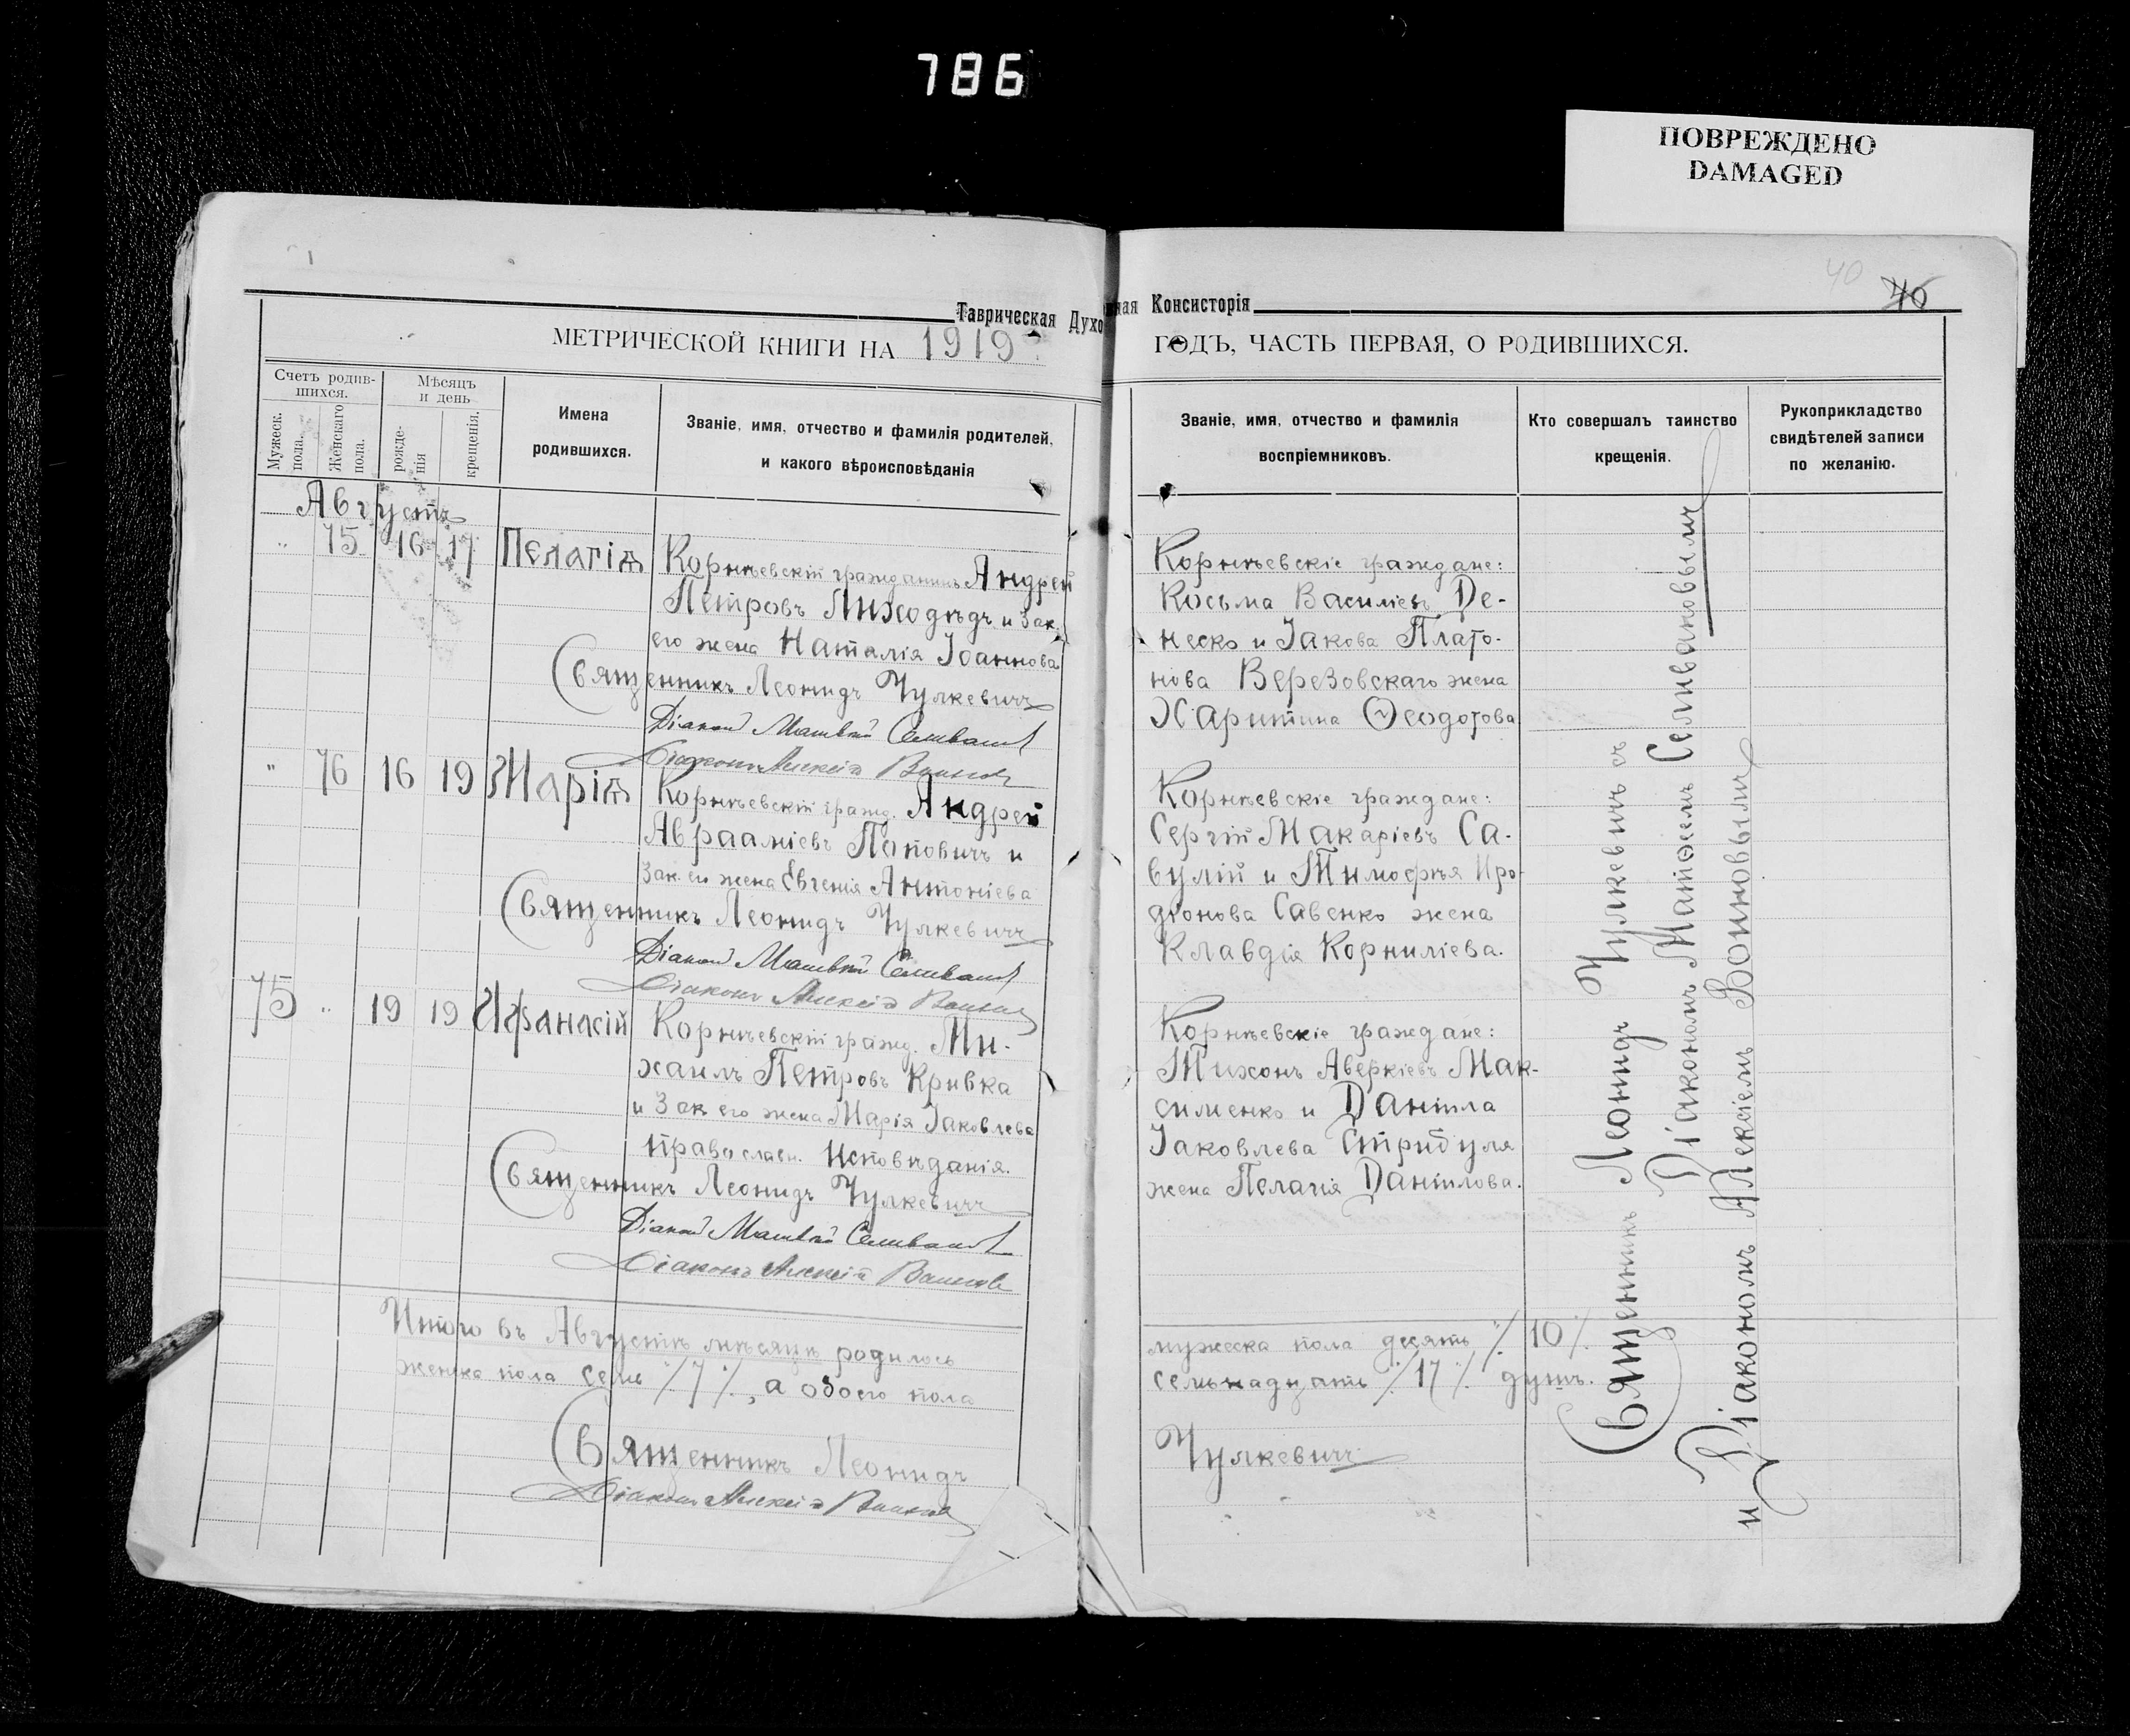 786
ПОВРЕЖДЕНО
DAMAGED
40
40
Таврическая Духовная Консисторія
МЕТРИЧЕСКОЙ КНИГИ НА 1919
ГОДЪ, ЧАСТЬ ПЕРВАЯ, О РОДИВШИХСЯ.
Счетъ родив-
шихся.
Мужеск.
пола.
Женскаго
пола.
Мѣсяцъ
и день
рожде-
нія
крещенія.
Имена
родившихся.
Званіе, имя, отчество и фамилія родителей,
и какого вѣроисповѣданія
Званіе, имя, отчество и фамилія
воспріемниковъ.
Кто совершалъ таинство
крещенія.
Рукоприкладство
свидѣтелей записи
по желанію.
Августъ
" 75 16 17 Пелагія
Корнѣевскій гражданинъ Андрей
Петровъ Лиходѣдъ и Зак.
его жена Наталія Іоаннова
Священникъ Леонидъ Чулкевичъ
Діакон Матвѣй Селиванов
Діаконъ Алексій Воинов
Корнѣевскіе граждане:
Косьма Василіевъ Де-
неско и Іакова Плато-
нова Березовскаго жена
Харитина Ѳеодотова
" 76 16 19 Марія
Корнѣевскій гражд. Андрей
Авраамліевъ Поповичъ и
Зак. его жена Евгенія Антоніева
Священникъ Леонидъ Чулкевичъ
Діакон Матвѣй Селиванов
Діаконъ Алексій Воинов
Корнѣевскіе граждане:
Сергій Макаріевъ Са-
вулій и Тимофѣя Иро-
діонова Савенко жена
Клавдія Корниліева.
75 " 19 19 Афанасій
Корнѣевскій гражд. Ми-
хаилъ Петровъ Кривка
и Зак его жена Марія Іаковлева
православн. исповѣданія.
Священникъ Леонидъ Чулкевичъ
Діакон Матвѣй Селиванов
Діаконъ Алексій Воинов
Корнѣевскіе граждане:
Тихонъ Аверкіевъ Мак-
сименко и Даніила
Іаковлева Стрибуля
жена Пелагія Даніилова.
Священникъ Леонидъ Чулкевичъ съ
Діакономъ Матѳеемъ Селивановымъ
и Діакономъ Алексіемъ Воиновымъ
Итого въ Августѣ мѣсяцѣ родилось
мужеска пола десять ٪ 10 ٪
женска пола семь ٪ 7 ٪, а обоего пола
семьнадцать ٪ 17 ٪ душъ.
Священникъ Леонидъ
Чулкевичъ
Діаконъ Алексій Воинов